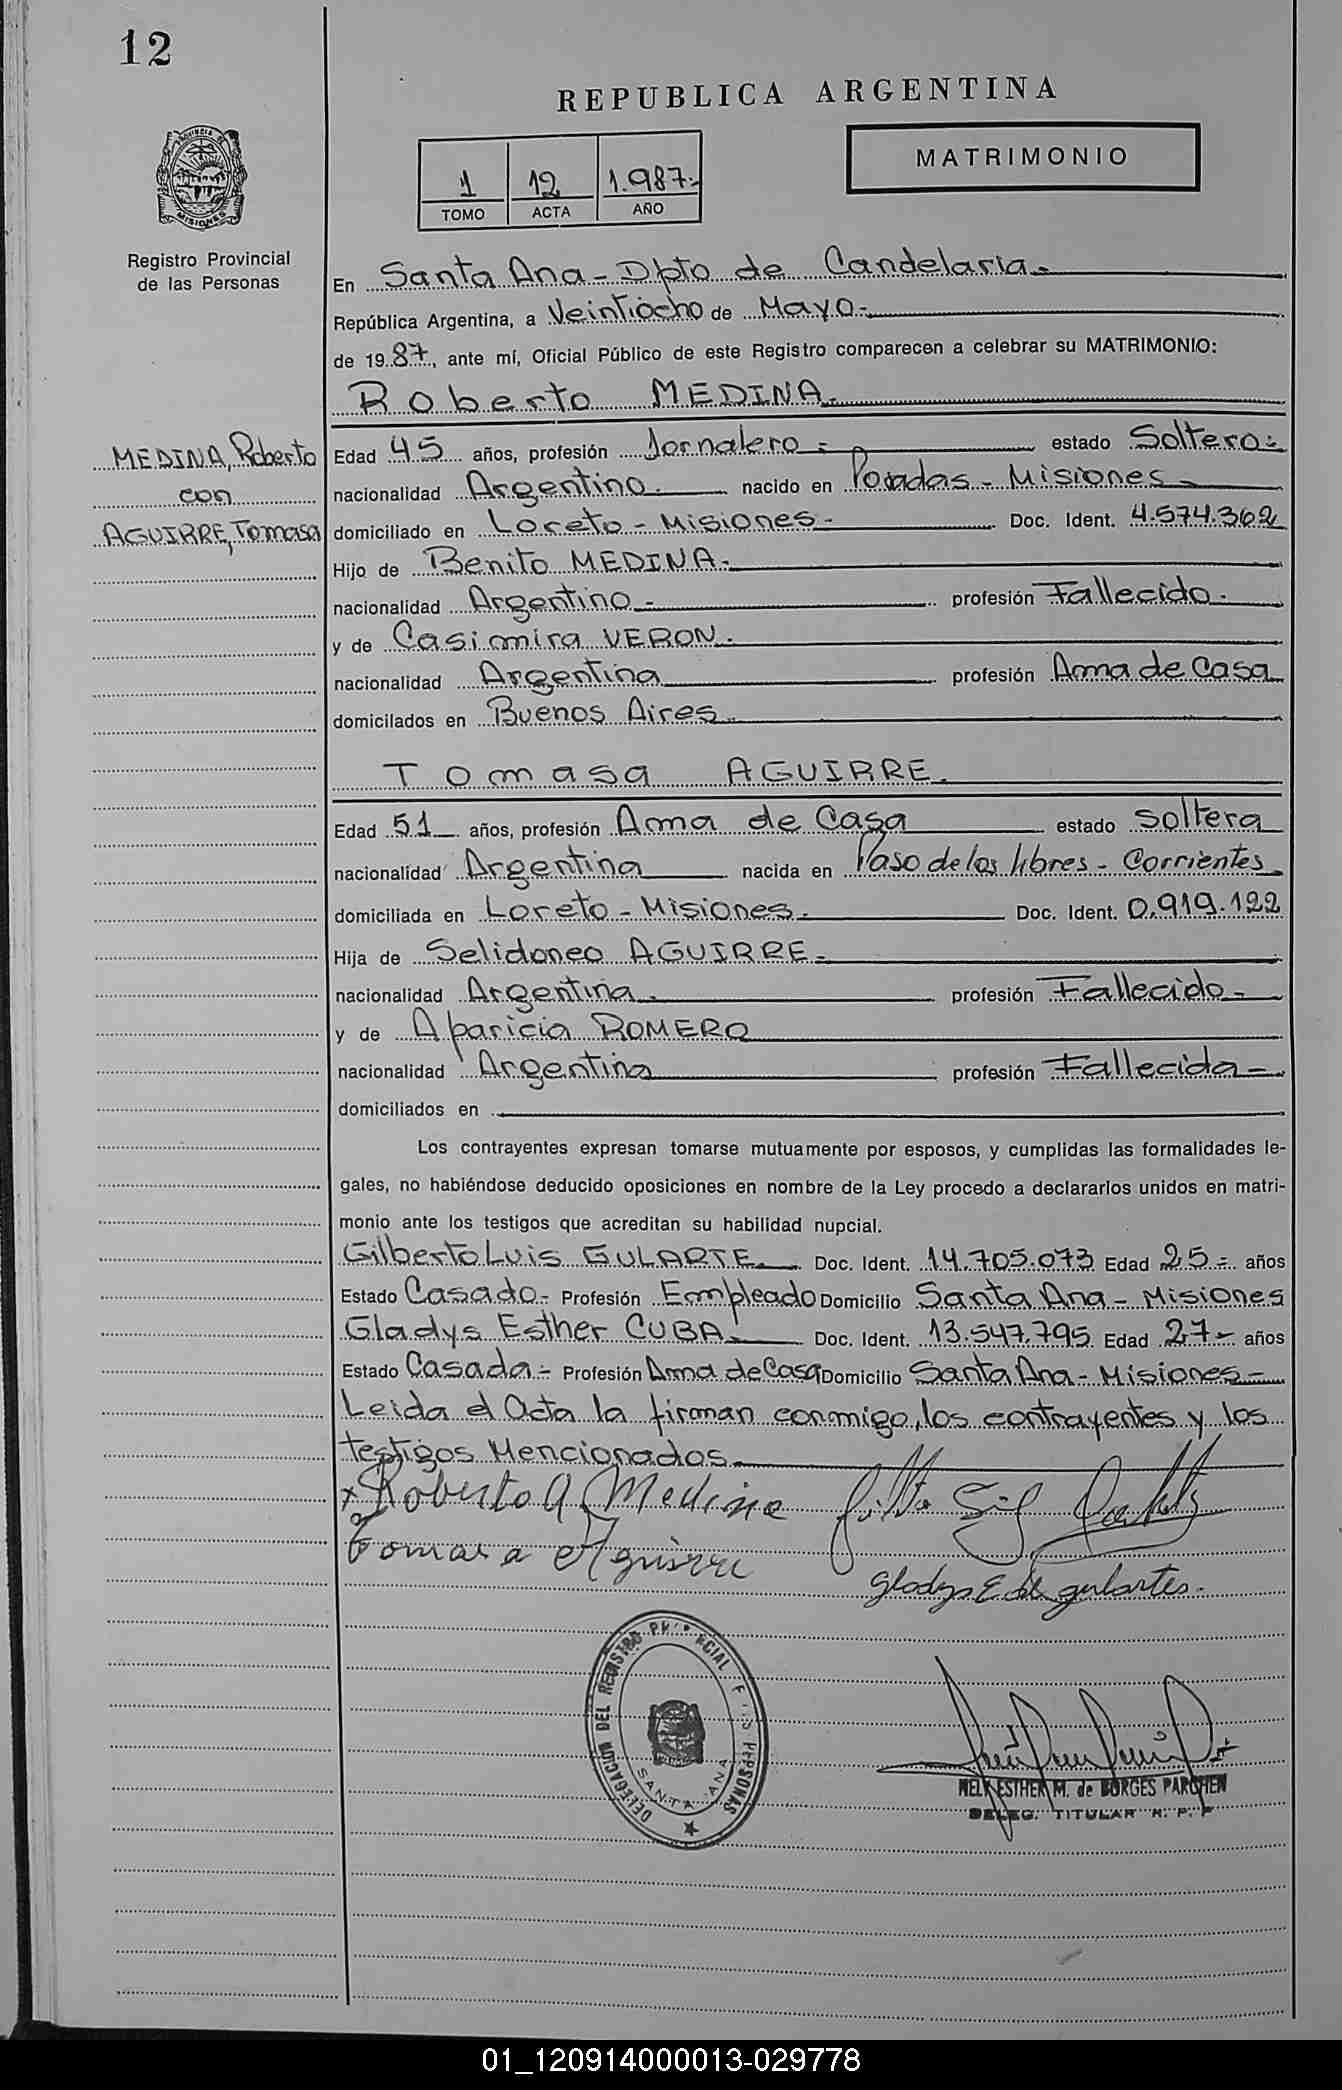 12
REPUBLICA ARGENTINA
MATRIMONIO
1 12 1.987.-
TOMO ACTA AÑO
PROVINCIA DE
MISIONES
Registro Provincial
de las Personas
En Santa Ana - Dpto de Candelaria.-
República Argentina, a Veintiocho de Mayo.-
de 19 87, ante mí, Oficial Público de este Registro comparecen a celebrar su MATRIMONIO:
Roberto MEDINA.
MEDINA, Roberto
con
AGUIRRE, Tomasa
Edad 45 años, profesión Jornalero.- estado Soltero.-
nacionalidad Argentino. nacido en Posadas - Misiones.-
domiciliado en Loreto - Misiones.- Doc. Ident. 4.574.362
Hijo de Benito MEDINA.-
nacionalidad Argentino.- profesión Fallecido.-
y de Casimira VERON.-
nacionalidad Argentina profesión Ama de Casa
domicilados en Buenos Aires.
Tomasa AGUIRRE.
Edad 51 años, profesión Ama de Casa estado Soltera
nacionalidad Argentina nacida en Paso de los libres - Corrientes.
domiciliada en Loreto - Misiones.- Doc. Ident. 0.919.122
Hija de Selidoneo AGUIRRE.-
nacionalidad Argentina. profesión Fallecido.-
y de Aparicia ROMERO
nacionalidad Argentina profesión Fallecida.-
domiciliados en
Los contrayentes expresan tomarse mutuamente por esposos, y cumplidas las formalidades le-
gales, no habiéndose deducido oposiciones en nombre de la Ley procedo a declararlos unidos en matri-
monio ante los testigos que acreditan su habilidad nupcial.
Gilberto Luis GULARTE. Doc. Ident. 14.705.073 Edad 25.- años
Estado Casado.- Profesión Empleado Domicilio Santa Ana - Misiones
Gladys Esther CUBA.- Doc. Ident. 13.547.795 Edad 27.- años
Estado Casada.- Profesión Ama de Casa Domicilio Santa Ana - Misiones.-
Leida el Acta la firman conmigo, los contrayentes y los
testigos Mencionados.
x Roberto A Medina
Tomasa Aguirre
Gladys E de gulartes.
DELEGACION DEL REGISTRO
PERSONAS
SANTA ANA
NELY ESTHER M. de BORGES PARCHEN
DELEG. TITULAR R. P. P
01_120914000013-029778